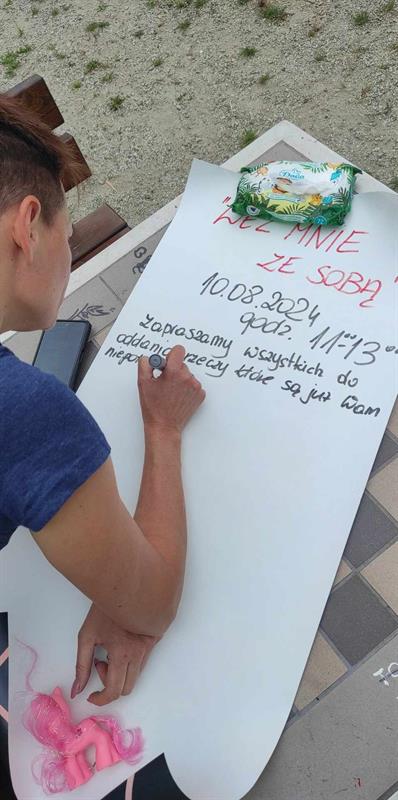 "WEŹ MNIE
ZE SOBĄ"
10.08.2024
godz. 11⁰⁰-13⁰⁰
Zapraszamy wszystkich do
oddania rzeczy które są już Wam
Dada